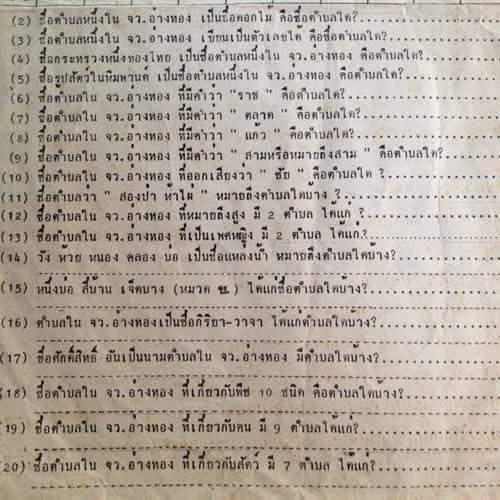 (2) ชื่อตำบลหนึ่งใน จว.อ่างทอง เป็นชื่อดอกไม้ คือชื่อตำบลใด?
(3) ชื่อตำบลหนึ่งใน จว.อ่างทอง เขียนเป็นตัวเลขได้ คือชื่อตำบลใด?
(4) ชื่อกระทรวงหนึ่งของไทย เป็นชื่อตำบลหนึ่งใน จว.อ่างทอง คือตำบลใด?
(5) ชื่อรูปสัตว์ในหิมพานต์ เป็นชื่อตำบลหนึ่งใน จว.อ่างทอง คือตำบลใด?
(6) ชื่อตำบลใน จว.อ่างทอง ที่มีคำว่า " ราช " คือตำบลใด?
(7) ชื่อตำบลใน จว.อ่างทอง ที่มีคำว่า " ตลาด " คือตำบลใด?
(8) ชื่อตำบลใน จว.อ่างทอง ที่มีคำว่า " แก้ว " คือตำบลใด?
(9) ชื่อตำบลใน จว.อ่างทอง ที่มีคำว่า " สามหรือหมายถึงสาม " คือตำบลใด?
(10) ชื่อตำบลใน จว.อ่างทอง ที่ออกเสียงว่า " ชัย " คือตำบลใด ?
(11) ชื่อตำบลว่า " สองป่า ห้าไผ่ " หมายถึงตำบลใดบ้าง ?
(12) ชื่อตำบลใน จว.อ่างทอง ที่หมายถึงสูง มี 2 ตำบล ได้แก่ ?
(13) ชื่อตำบลใน จว.อ่างทอง ที่เป็นเพศหญิง มี 2 ตำบล ได้แก่?
(14) วัง ห้วย หนอง คลอง บ่อ เป็นชื่อแหล่งน้ำ หมายถึงตำบลใดบ้าง?
(15) หนึ่งบ่อ สี่บ้าน เจ็ดบาง (หมวด บ.) ได้แก่ชื่อตำบลใดบ้าง?
(16) ตำบลใน จว.อ่างทองเป็นชื่อกิริยา-วาจา ได้แก่ตำบลใดบ้าง?
(17) ชื่อศักดิ์สิทธิ์ อันเป็นนามตำบลใน จว.อ่างทอง มีตำบลใดบ้าง?
(18) ชื่อตำบลใน จว.อ่างทอง ที่เกี่ยวกับพืช 10 ชนิด คือตำบลใดบ้าง?
(19) ชื่อตำบลใน จว.อ่างทอง ที่เกี่ยวกับคน มี 9 ตำบล ได้แก่?
(20) ชื่อตำบลใน จว.อ่างทอง ที่เกี่ยวกับสัตว์ มี 7 ตำบล ได้แก่?